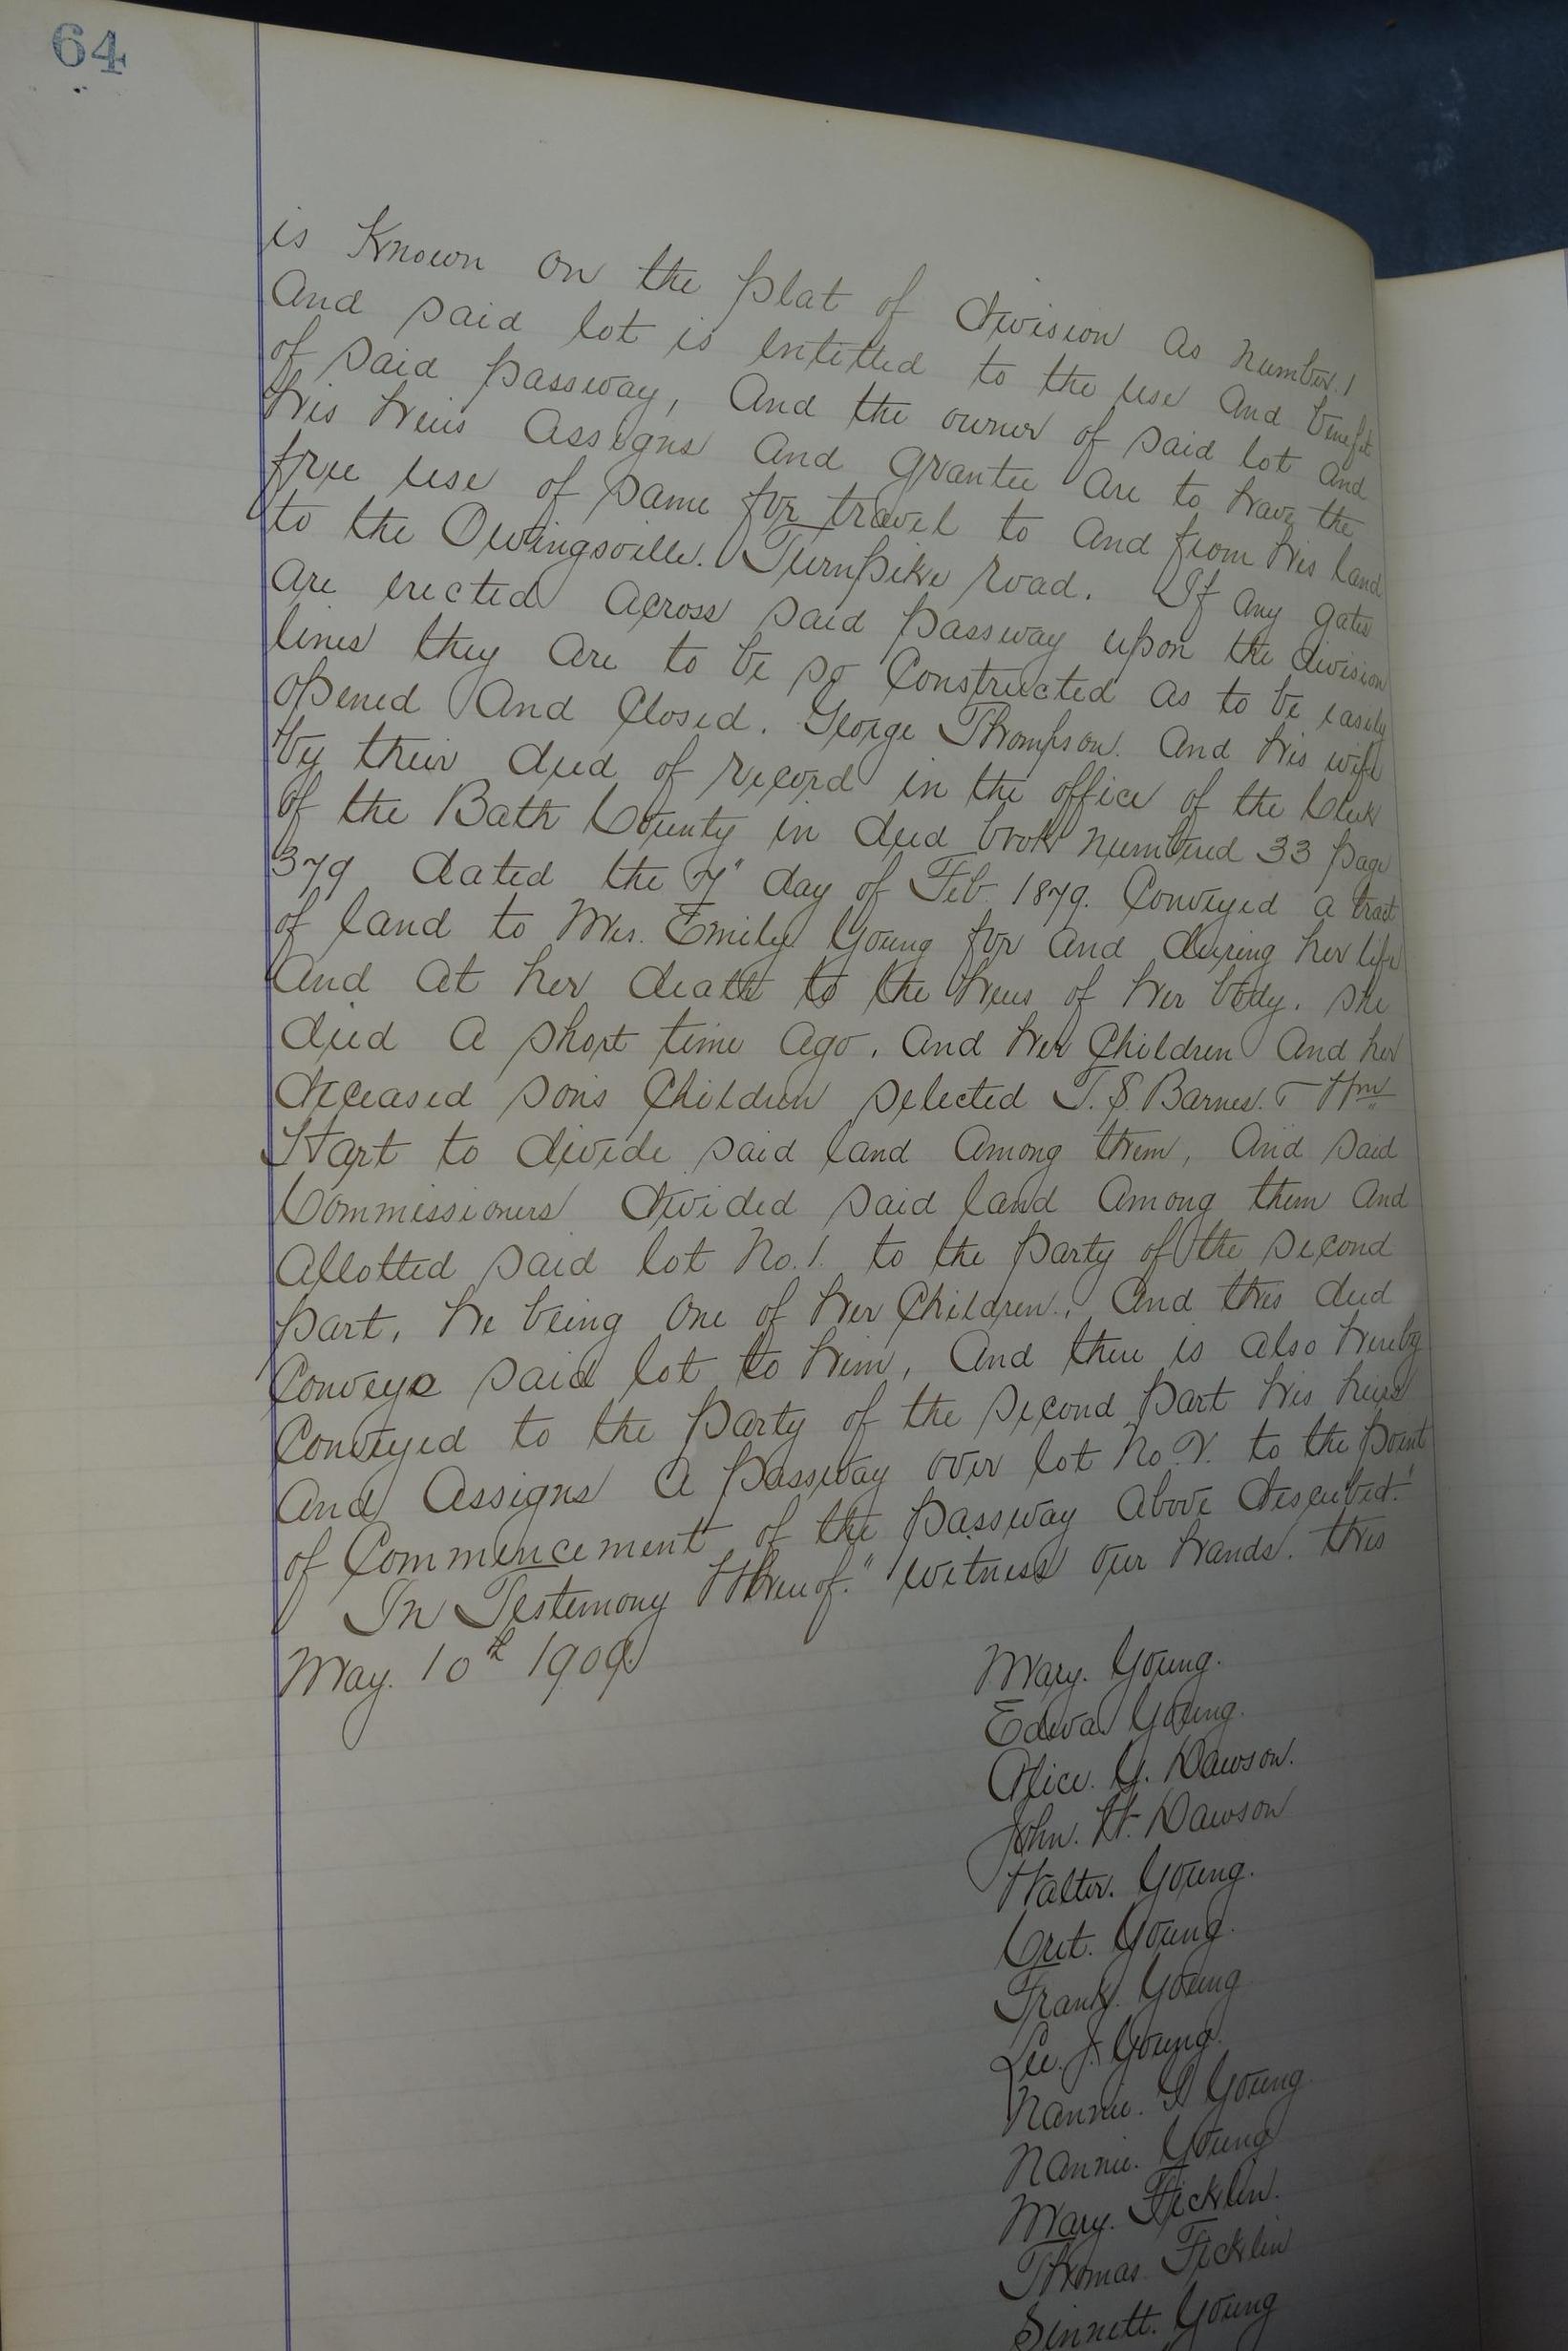 64
is Known on the plat of division as number 1
And said lot is entitled to the use and benefit
of said passway, And the owner of said lot and
his heirs Assigns And Grantee are to have the
free use of same for travel to and from his land
to the Owingsville. Turnpike road. If any gates
are erected across said passway upon the division
lines they are to be so Constructed as to be easily
opened And Closed. George Thompson. And his wife
by their deed of record in the office of the Clerk
of the Bath County in deed book numbered 33 page
379 dated the 7" day of Feb. 1879. Conveyed a tract
of land to Mrs. Emily Young for and during her life
And at her death to the heirs of her body. She
died a short time ago. And her Children And her
deceased sons Children selected T. S. Barnes. & Wm
Hart to divide said land among them, And said
Commissioners divided said land among them and
Allotted said lot No. 1. to the party of the second
part, he being one of her Children., And this deed
Conveys said lot to him, And there is also hereby
Conveyed to the party of the second part his heirs
And Assigns a passway over lot No. V. to the point
of Commencement of the passway above described.
In Testimony Whereof." witness our hands. this
May. 10th 1909.
Mary. Young.
Edwa Young.
Alice. Y. Dawson.
John. H. Dawson
Walter. Young.
Cret. Young.
Frank. Young
Lee. J. Young.
Nannie. Young
Nannie. Young
Mary. Ficklin.
Thomas Ficklin
Sinnett. Young